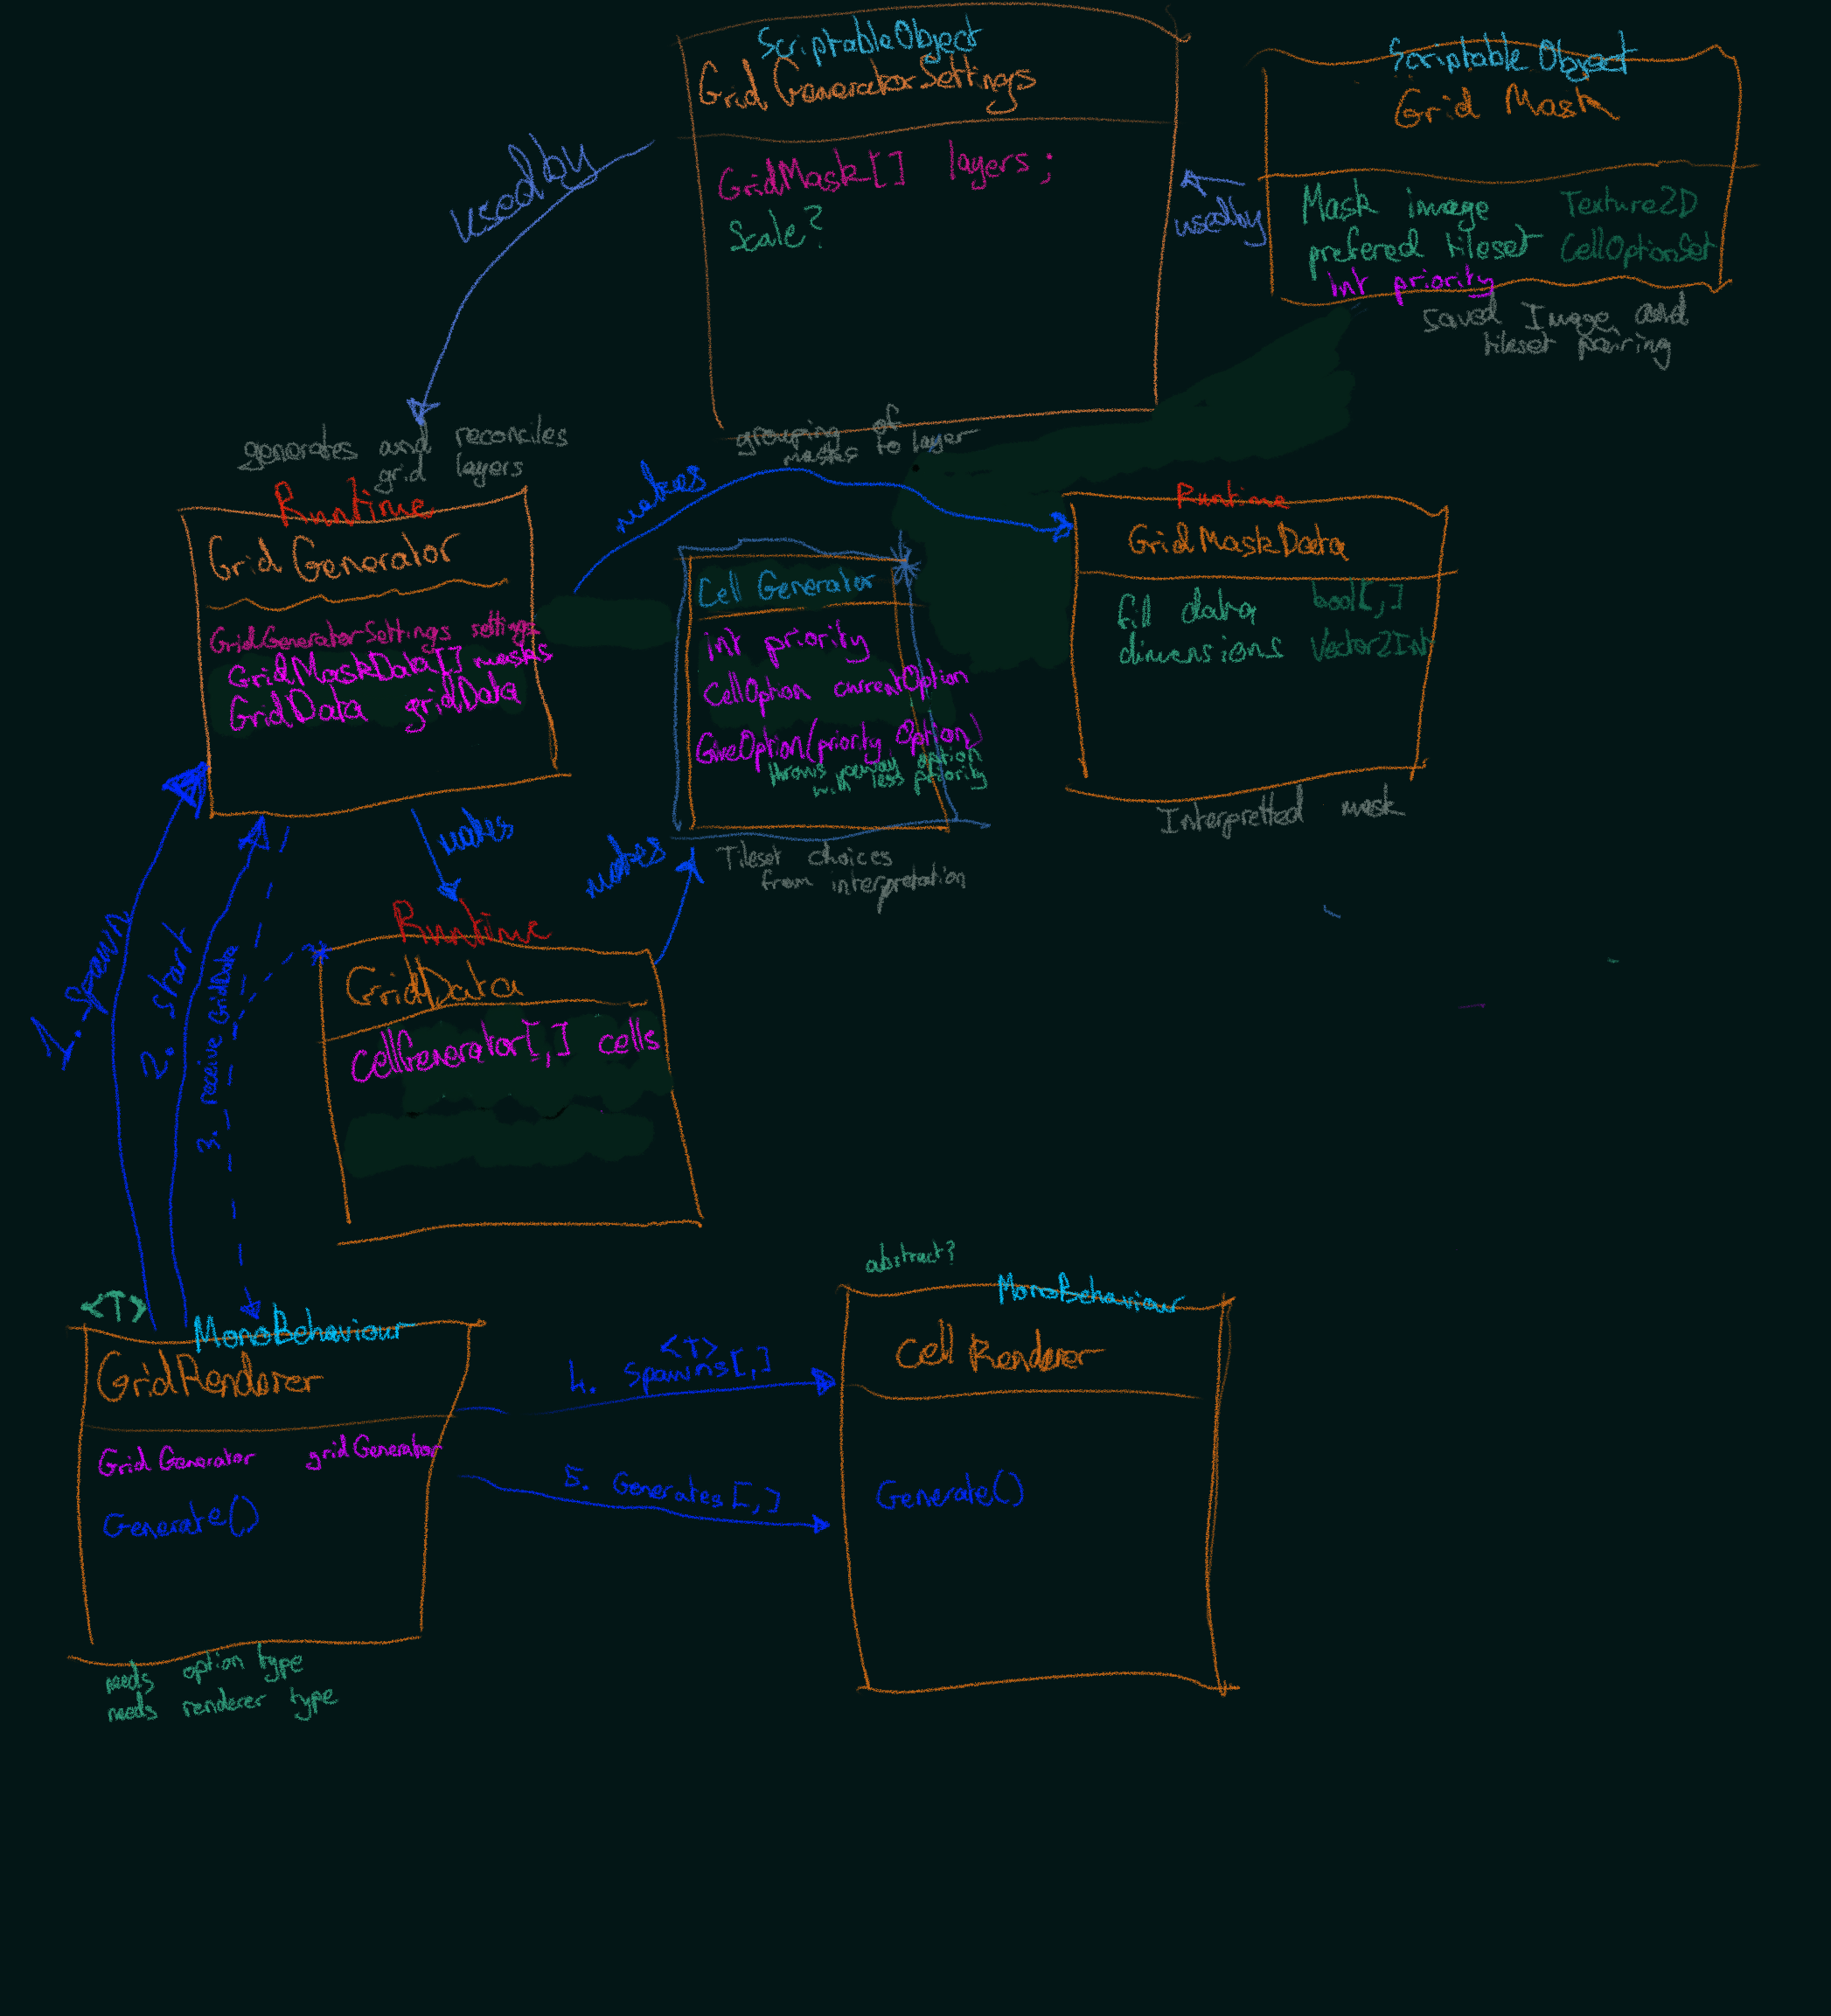 ScriptableObject
GridGeneratorSettings
GridMask[] layers;
Scale?
grouping of
masks to layer
ScriptableObject
Grid Mask
Mask image Texture2D
prefered tileset CellOptionSet
int priority
saved Image and
tileset pairing
usedby
usedby
generates and reconciles
grid layers
Runtime
Grid Generator
GridGeneratorSettings settings
GridMaskData[] masks
GridData gridData
makes
Cell Generator
int priority
CellOption currentOption
GiveOption(priority, Option)
throws away option
with less priority
Tileset choices
from interpretation
Runtime
GridMaskData
fill data bool[,]
dimensions Vector2Int
Interpretted mask
makes
makes
Runtime
GridData
CellGenerator[,] cells
1. Spawn
2. start
3. receive GridData
<T>
MonoBehaviour
GridRenderer
Grid Generator gridGenerator
Generate()
needs option type
needs renderer type
<T>
4. Spawns[,]
5. Generates[,]
abstract?
MonoBehaviour
Cell Renderer
Generate()